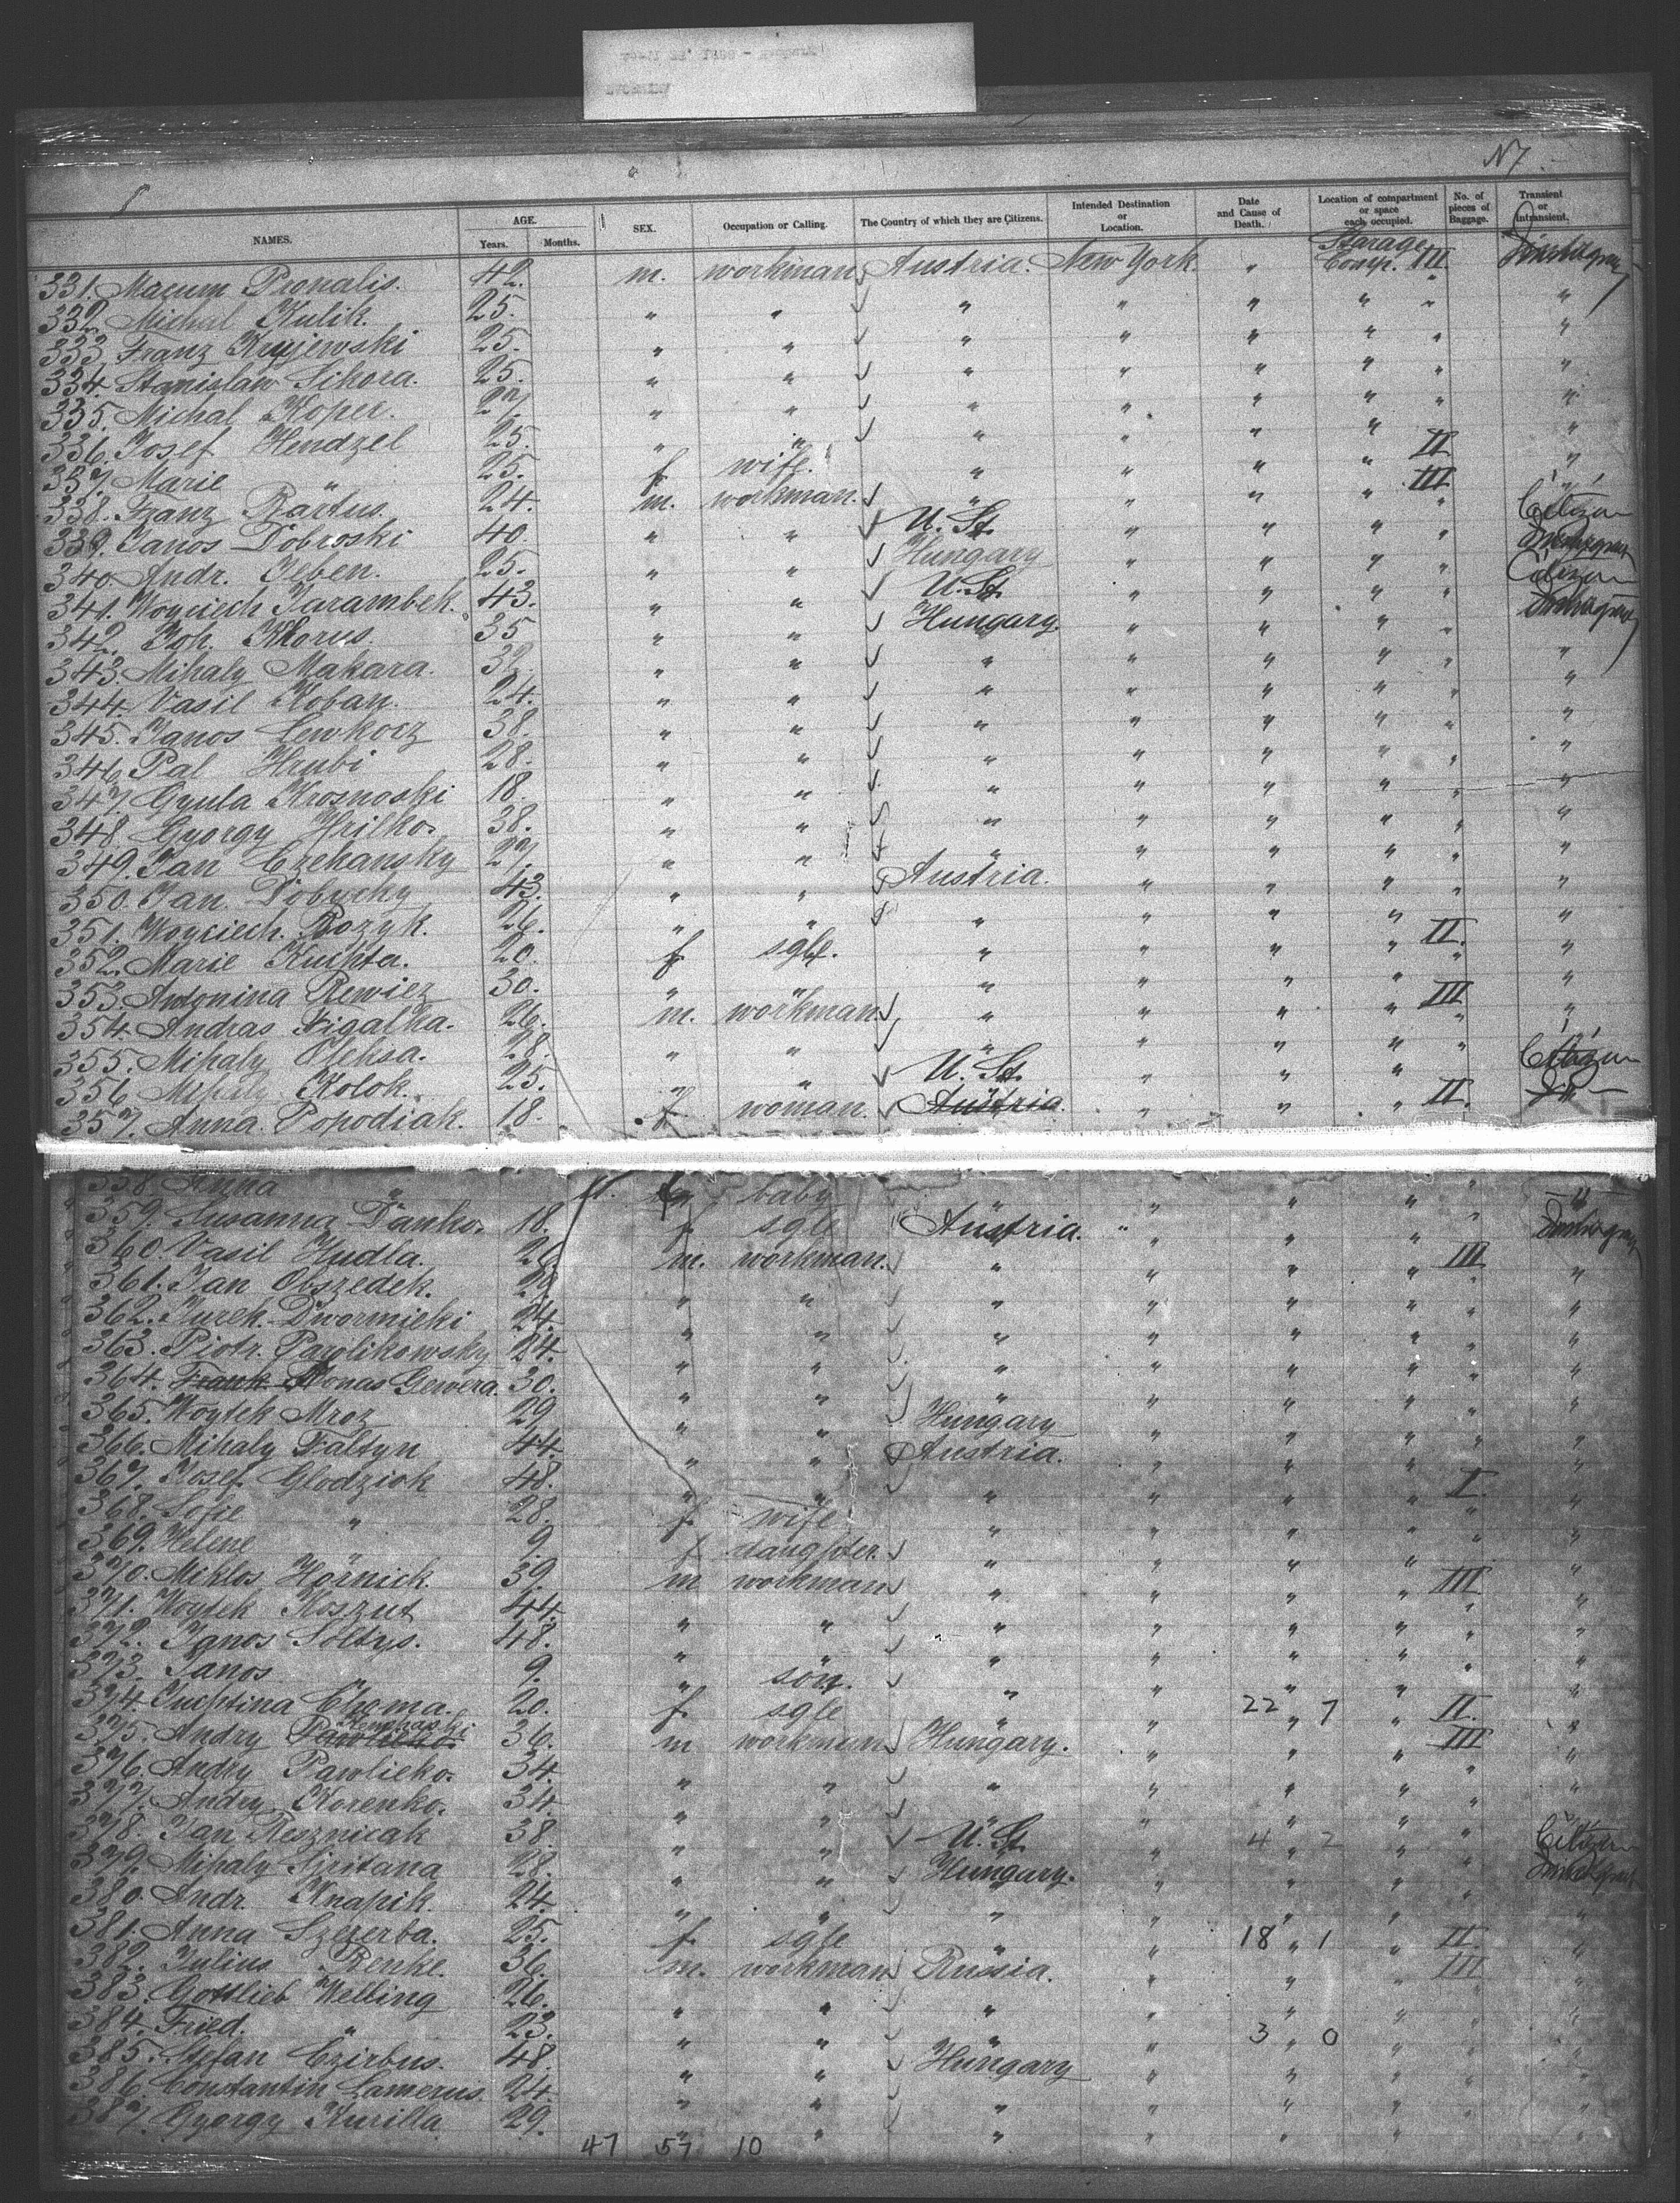 N7
NAMES. AGE. Years. Months. SEX. Occupation or Calling. The Country of which they are Citizens. Intended Destination or Location. Date and Cause of Death. Location of compartment or space each occupied. No. of pieces of Baggage. Transient or Intransient.
331. Macum Pronalis. 42. m. workman Austria. New York. " Starage Comp. III.
332. Michal Kulik. 25. " " " " " " " "
333. Franz Krujewski 25. " " " " " " " "
334. Stanislaw Sikora. 25. " " " " " " " "
335. Michal Koper. 27. " " " " " " " "
336. Josef Hendzel 25. " " " " " " " "
337. Marie " 25. f. wife. " " " " II "
338. Franz Bartus. 24. m. workman. " " " " III "
339. Janos Dobroski 40. " " U. St. " " " " Citizen
340. Andr. Jeben. 25. " " Hungary " " " " Immigrant
341. Woyciech Jarambek. 43. " " U. St. " " " " Citizen
342. Joh. Khorus. 35 " " Hungary. " " " " Immigrant
343. Mihaly Makara. 32. " " " " " " " "
344. Vasil Koban. 24. " " " " " " " "
345. Janos Lewkocz 38. " " " " " " " "
346. Pal Hrubi 28. " " " " " " " "
347. Gyula Krosnoski 18. " " " " " " " "
348. Gyorgy Hrilko. 38. " " " " " " " "
349. Jan Czekansky 27. " " " " " " " "
350. Jan Dobucky 43. " " Austria. " " " " "
351. Woyciech Bozyk. 26. " " " " " " " "
352. Marie Kuchta. 20. f. sgle. " " " " II. "
353. Antonina Rewiez 30. " " " " " " " "
354. Andras Figalka. 26. m. workman. " " " " III "
355. Mihaly Oleksa. 28. " " " " " " " "
356 Mihaly Kolok. 25. " " U. St. " " " " Citizen
357. Anna Popodiak. 18. f. woman. Austria. " " " II.
358. Anna " baby " " " " " "
359. Susanna Danko. 18. f sgle Austria. " " " " Immigrant
360. Vasil Hudla. 26 m. workman. " " " " III "
361. Jan Obszedek. 29 " " " " " " " "
362. Jurek Dwornicki 24. " " " " " " " "
363. Piotr. Pawlikowsky 24. " " " " " " " "
364. Frank Jonas Gewera. 30. " " " " " " " "
365. Woytek Mroz 29 " " Hungary " " " " "
366. Mihaly Faltyn 44. " " Austria. " " " " "
367. Josef Glodziok 48. " " " " " " I. "
368. Sofie " 28. f. wife " " " " " "
369. Helene " 9. f daughter. " " " " " "
370. Miklos Hornick. 39. m workman " " " " III "
371. Woytek Koszut 44. " " " " " " " "
372. Janos Soltys. 48. " " " " " " " "
373. Janos " 9. " son. " " " " " "
374. Juchtina Choma. 20. f. sgle " " 22 " 7 " II. "
375. Andry Pawlicko. 36. m workman Hungary. " " " III "
376. Andry Pawlicko. 34. " " " " " " " "
377. Andry Korenko. 34. " " " " " " " "
378. Jan Resznicak 38. " " U. St. " 4 " 2 " " Citizen
379. Mihaly Sjritana 28. " " Hungary. " " " " Immigrant
380. Andr. Knapik. 24. " " " " " " " "
381. Anna Szczerba. 25. f. sgle " " 18 " 1 " II. "
382. Julius Renke. 36. m. workman Russia. " " " III "
383. Gottlieb Welbing 26. " " " " " " " "
384. Fried. " 23. " " " " 3 " 0 " " "
385. Stefan Czirbus. 48. " " Hungary " " " " "
386. Constantin Lamerus. 24. " " " " " " " "
387. Gyorgy Kurilla 29. " " " " " " " "
47 57 10